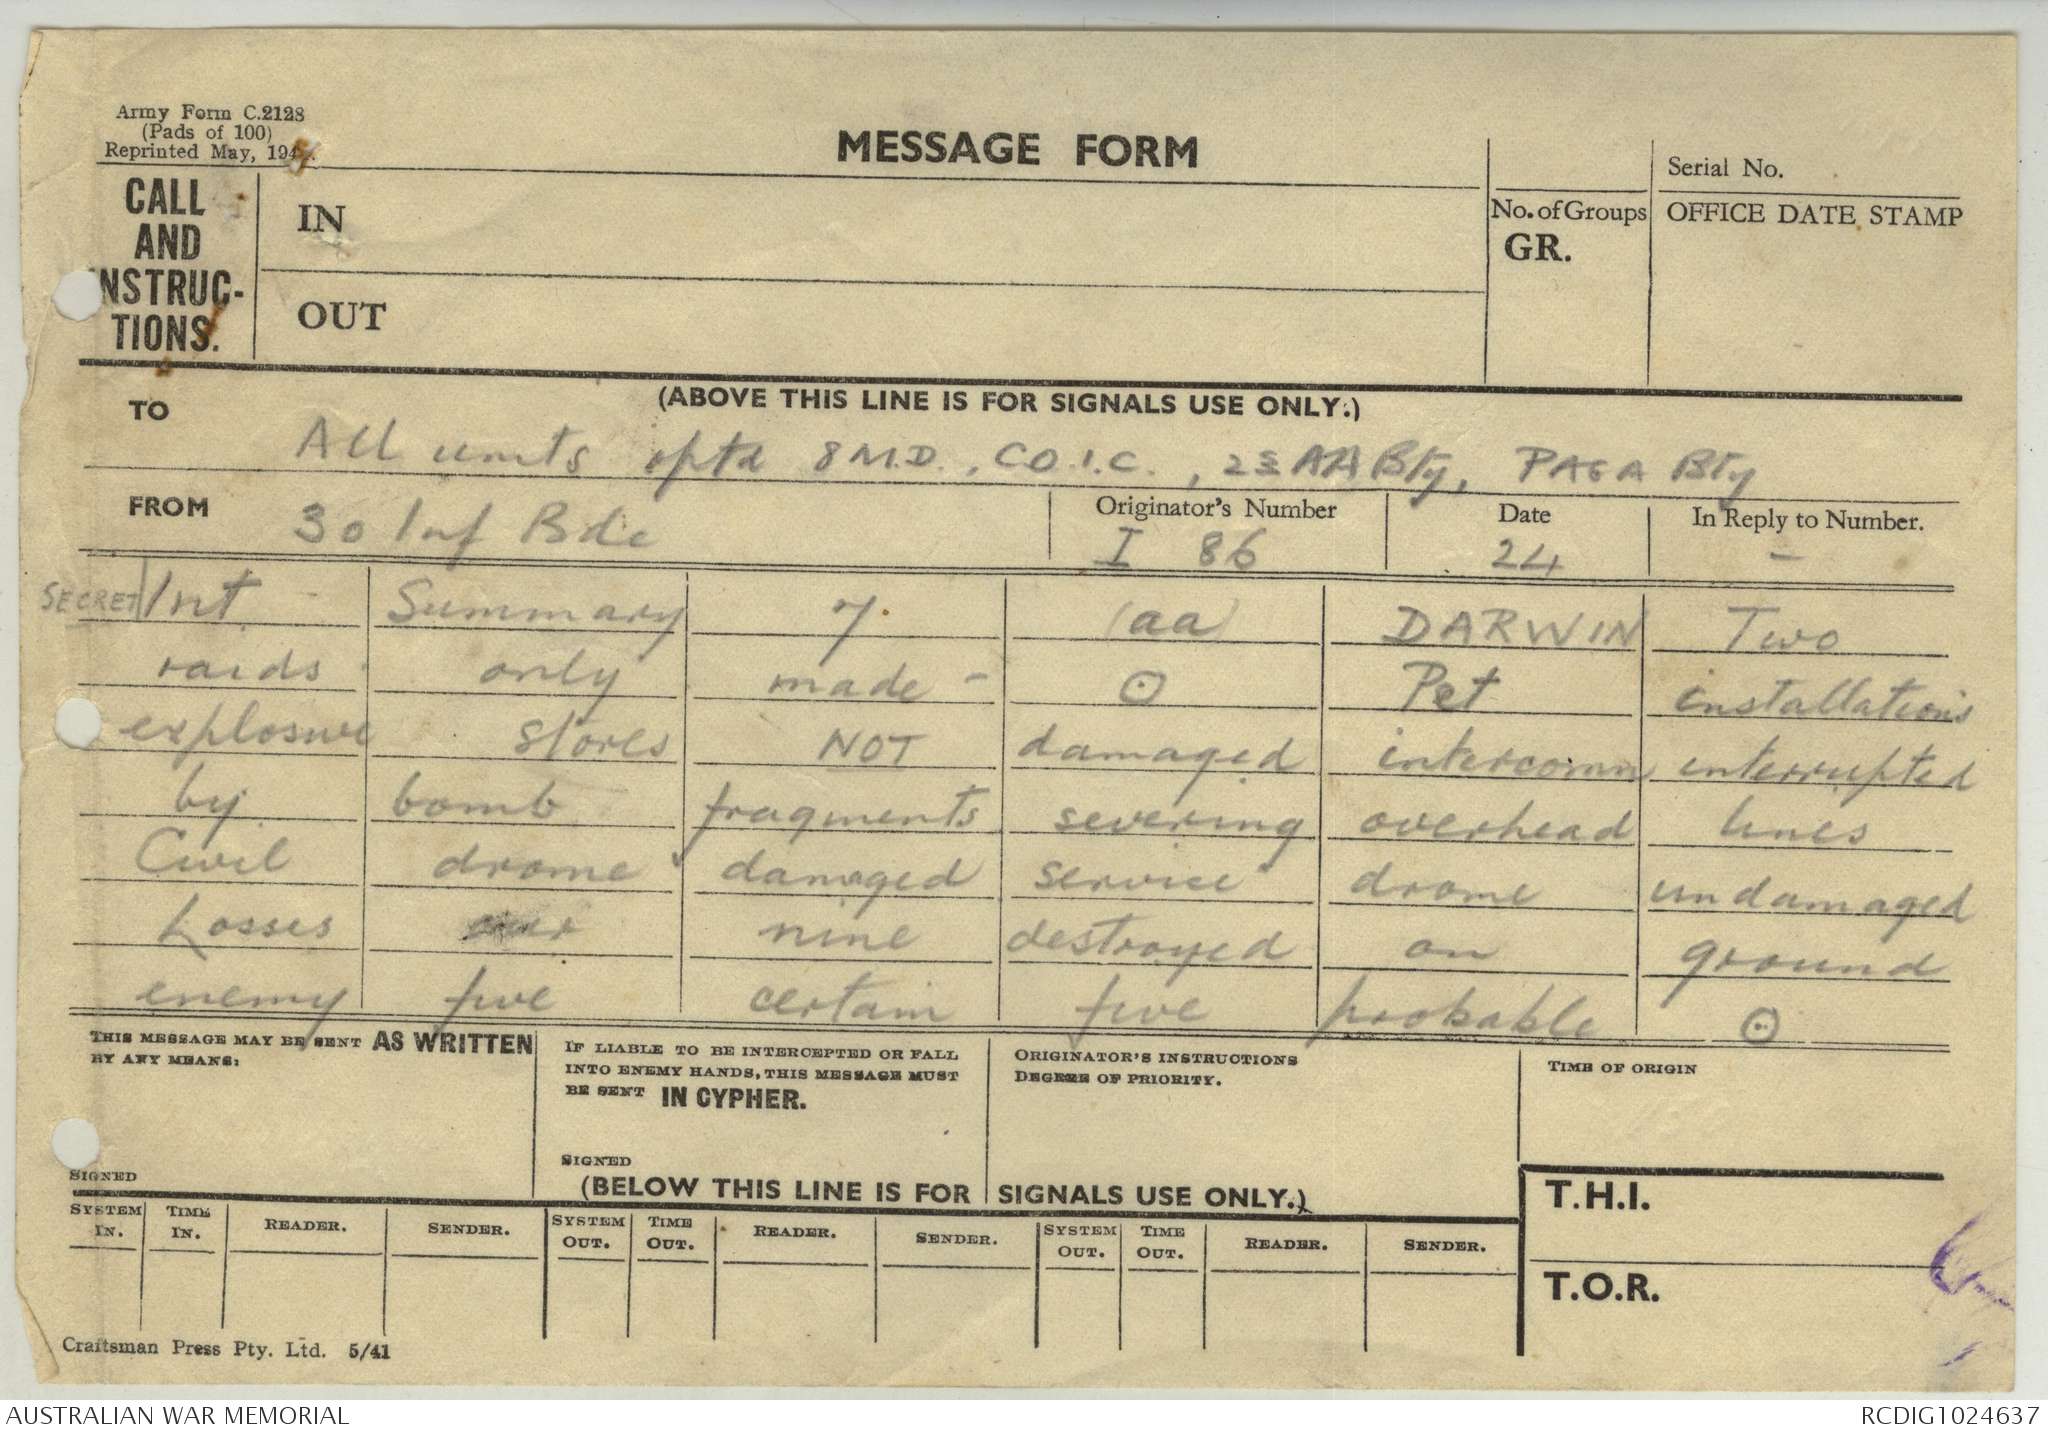 Army Form C.2128
(Pads of 100)
Reprinted May, 194
MESSAGE FORM
Serial No.
CALL
AND
INSTRUC-
TIONS.
IN
OUT
No. of Groups
GR.
OFFICE DATE STAMP
(ABOVE THIS LINE IS FOR SIGNALS USE ONLY.)
TO
All units 8 M.D., C.O.I.C., 23 AA Bty, PAGA Bty
FROM
30 Inf Bde
Originator's Number
I 86
Date
24
In Reply to Number.
–
SECRET Int. Summary 7. (aa) DARWIN Two
raids only made - ⊙ Pet installations
explosive stores NOT damaged intercomm interrupted
by bomb fragments severing overhead lines
Civil drome damaged service drome undamaged
Losses our nine destroyed on ground
enemy five certain five probable ⊙
THIS MESSAGE MAY BE SENT AS WRITTEN
BY ANY MEANS:
SIGNED
IF LIABLE TO BE INTERCEPTED OR FALL
INTO ENEMY HANDS, THIS MESSAGE MUST
BE SENT IN CYPHER.
SIGNED
ORIGINATOR'S INSTRUCTIONS
DEGREE OF PRIORITY.
TIME OF ORIGIN
(BELOW THIS LINE IS FOR SIGNALS USE ONLY.)
SYSTEM IN. TIME IN. READER. SENDER. SYSTEM OUT. TIME OUT. READER. SENDER. SYSTEM OUT. TIME OUT. READER. SENDER.
T.H.I.
T.O.R.
Craftsman Press Pty. Ltd. 5/41
AUSTRALIAN WAR MEMORIAL
RCDIG1024637